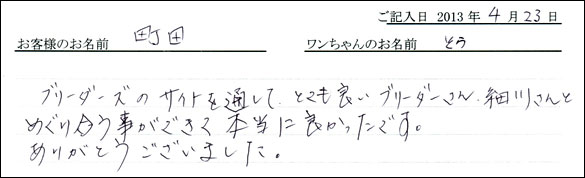 ご記入日 2013 年 4 月 23 日
お客様のお名前 町田 ワンちゃんのお名前 そう
ブリーダーズのサイトを通して、とても良いブリーダーさん、細川さんと
めぐり合う事ができて本当に良かったです。
ありがとうございました。